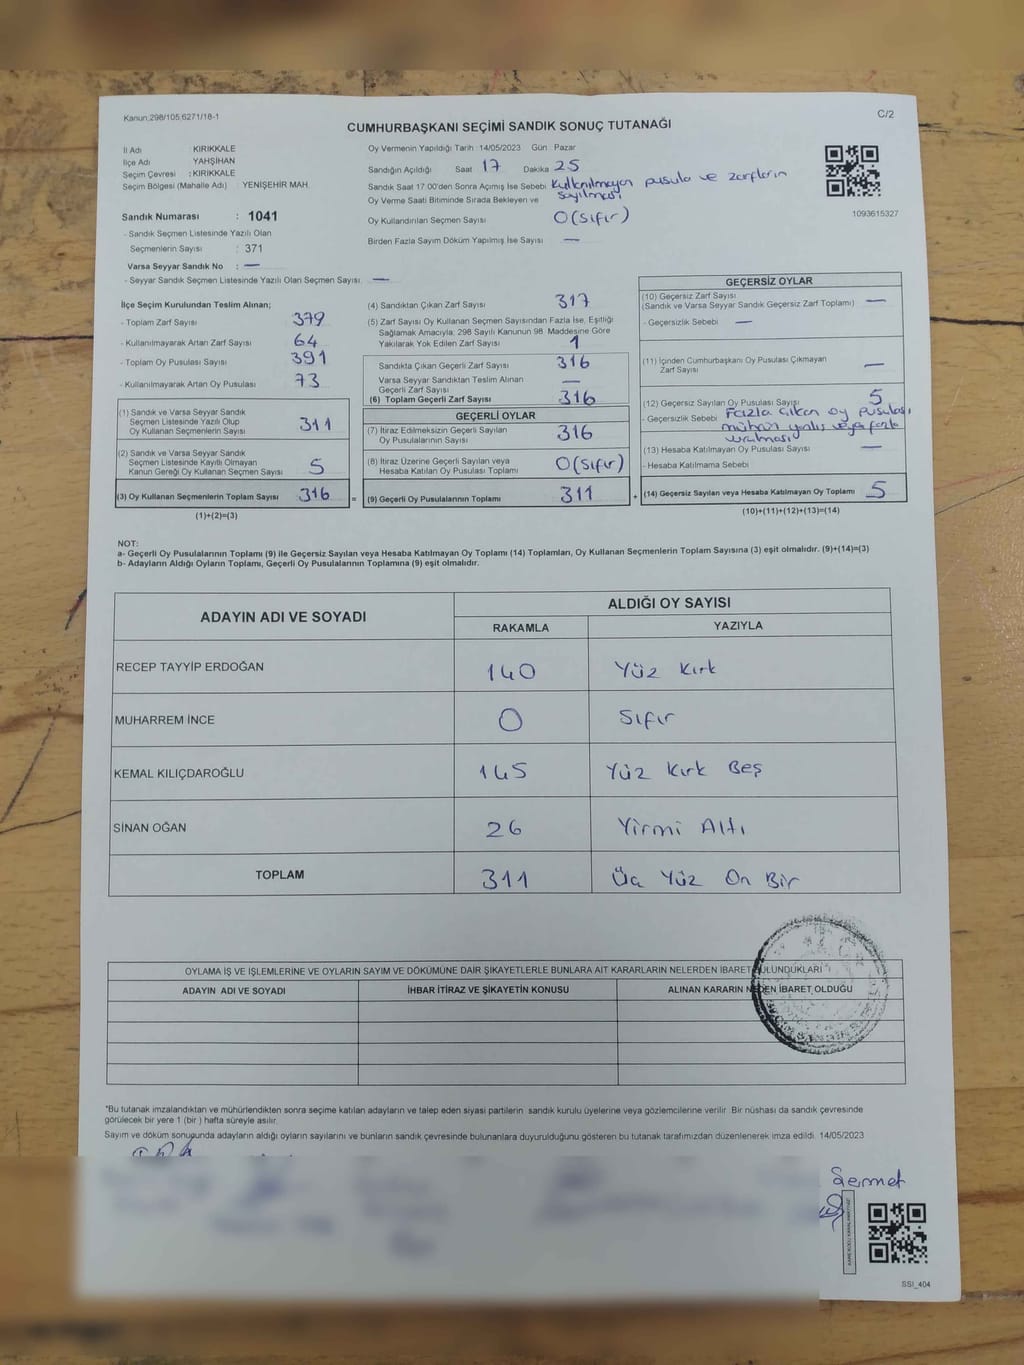 Kanun:298/105,6271/18-1
C/2
CUMHURBAŞKANI SEÇİMİ SANDIK SONUÇ TUTANAĞI
İl Adı KIRIKKALE
İlçe Adı YAHŞİHAN
Seçim Çevresi : KIRIKKALE
Seçim Bölgesi (Mahalle Adı) YENİŞEHİR MAH.
Sandık Numarası : 1041
- Sandık Seçmen Listesinde Yazılı Olan
Seçmenlerin Sayısı : 371
Varsa Seyyar Sandık No : —
- Seyyar Sandık Seçmen Listesinde Yazılı Olan Seçmen Sayısı: —
Oy Vermenin Yapıldığı Tarih : 14/05/2023 Gün : Pazar
Sandığın Açıldığı Saat 17 Dakika 25
Sandık Saat 17.00'den Sonra Açımış İse Sebebi Kullanılmayan pusula ve zarfların
sayılması
Oy Verme Saati Bitiminde Sırada Bekleyen ve
Oy Kullandırılan Seçmen Sayısı 0 (Sıfır)
Birden Fazla Sayım Döküm Yapılmış İse Sayısı —
1093615327
İlçe Seçim Kurulundan Teslim Alınan;
- Toplam Zarf Sayısı 379
- Kullanılmayarak Artan Zarf Sayısı 64
- Toplam Oy Pusulası Sayısı 391
- Kullanılmayarak Artan Oy Pusulası 73
(1) Sandık ve Varsa Seyyar Sandık
Seçmen Listesinde Yazılı Olup
Oy Kullanan Seçmenlerin Sayısı 311
(2) Sandık ve Varsa Seyyar Sandık
Seçmen Listesinde Kayıtlı Olmayan
Kanun Gereği Oy Kullanan Seçmen Sayısı 5
(3) Oy Kullanan Seçmenlerin Toplam Sayısı 316
(1)+(2)=(3)
(4) Sandıktan Çıkan Zarf Sayısı 317
(5) Zarf Sayısı Oy Kullanan Seçmen Sayısından Fazla İse, Eşitliği
Sağlamak Amacıyla, 298 Sayılı Kanunun 98. Maddesine Göre
Yakılarak Yok Edilen Zarf Sayısı 1
Sandıkta Çıkan Geçerli Zarf Sayısı 316
Varsa Seyyar Sandıktan Teslim Alınan
Geçerli Zarf Sayısı —
(6) Toplam Geçerli Zarf Sayısı 316
=
GEÇERLİ OYLAR
(7) İtiraz Edilmeksizin Geçerli Sayılan
Oy Pusulalarının Sayısı 316
(8) İtiraz Üzerine Geçerli Sayılan veya
Hesaba Katılan Oy Pusulası Toplamı 0 (Sıfır)
(9) Geçerli Oy Pusulalarının Toplamı 311
+
GEÇERSİZ OYLAR
(10) Geçersiz Zarf Sayısı
(Sandık ve Varsa Seyyar Sandık Geçersiz Zarf Toplamı) —
- Geçersizlik Sebebi —
(11) İçinden Cumhurbaşkanı Oy Pusulası Çıkmayan
Zarf Sayısı —
(12) Geçersiz Sayılan Oy Pusulası Sayısı 5
- Geçersizlik Sebebi Fazla çıkan oy pusulası
mühür yanlış veya fazla
vurulması
(13) Hesaba Katılmayan Oy Pusulası Sayısı —
- Hesaba Katılmama Sebebi
(14) Geçersiz Sayılan veya Hesaba Katılmayan Oy Toplamı 5
(10)+(11)+(12)+(13)=(14)
NOT:
a- Geçerli Oy Pusulalarının Toplamı (9) ile Geçersiz Sayılan veya Hesaba Katılmayan Oy Toplamı (14) Toplamları, Oy Kullanan Seçmenlerin Toplam Sayısına (3) eşit olmalıdır. (9)+(14)=(3)
b- Adayların Aldığı Oyların Toplamı, Geçerli Oy Pusulalarının Toplamına (9) eşit olmalıdır.
ADAYIN ADI VE SOYADI ALDIĞI OY SAYISI
RAKAMLA YAZIYLA
RECEP TAYYİP ERDOĞAN 140 Yüz Kırk
MUHARREM İNCE 0 Sıfır
KEMAL KILIÇDAROĞLU 145 Yüz Kırk Beş
SİNAN OĞAN 26 Yirmi Altı
TOPLAM 311 Üç Yüz On Bir
OYLAMA İŞ VE İŞLEMLERİNE VE OYLARIN SAYIM VE DÖKÜMÜNE DAİR ŞİKAYETLERLE BUNLARA AİT KARARLARIN NELERDEN İBARET BULUNDUKLARI
ADAYIN ADI VE SOYADI İHBAR İTİRAZ VE ŞİKAYETİN KONUSU ALINAN KARARIN NEDEN İBARET OLDUĞU
*Bu tutanak imzalandıktan ve mühürlendikten sonra seçime katılan adayların ve talep eden siyasi partilerin sandık kurulu üyelerine veya gözlemcilerine verilir. Bir nüshası da sandık çevresinde
görülecek bir yere 1 (bir ) hafta süreyle asılır.
Sayım ve döküm sonuçunda adayların aldığı oyların sayılarını ve bunların sandık çevresinde bulunanlara duyurulduğunu gösteren bu tutanak tarafımızdan düzenlenerek imza edildi. 14/05/2023
SSI_404